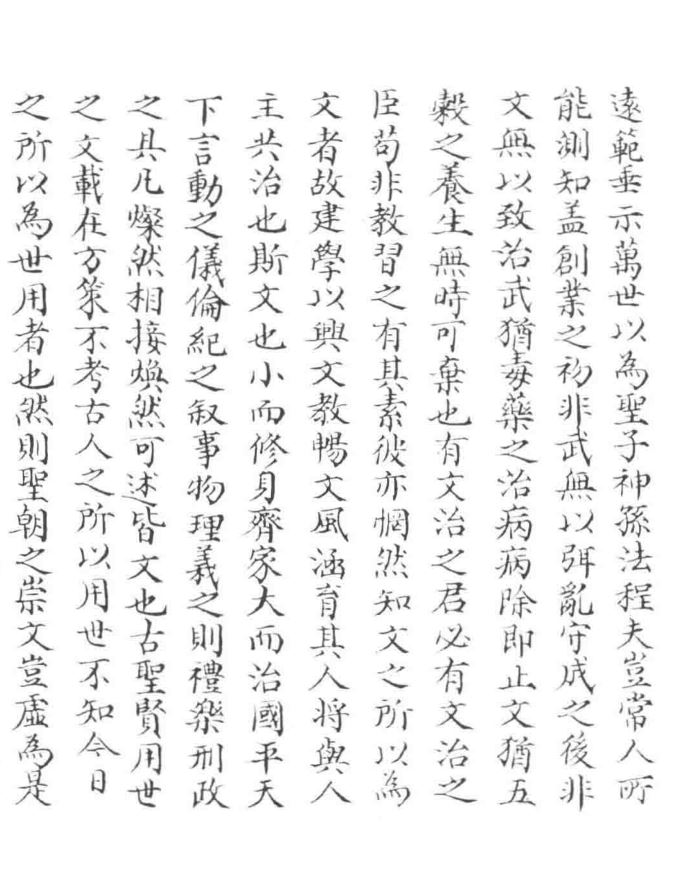 遠範垂示萬世以為聖子神孫法程夫豈常人所
能測知盖創業之初非武無以弭亂守成之後非
文無以致治武猶毒藥之治病病除即止文猶五
穀之養生無時可棄也有文治之君必有文治之
臣苟非教習之有其素彼亦惘然知文之所以為
文者故建學以興文教暢文風涵育其人将與人
主共治也斯文也小而修身齊家大而治國平天
下言動之儀倫紀之叙事物理義之則禮樂刑政
之具凡燦然相接煥然可述皆文也古聖賢用世
之文載在方策不考古人之所以用世不知今日
之所以為世用者也然則聖朝之崇文豈虛為是